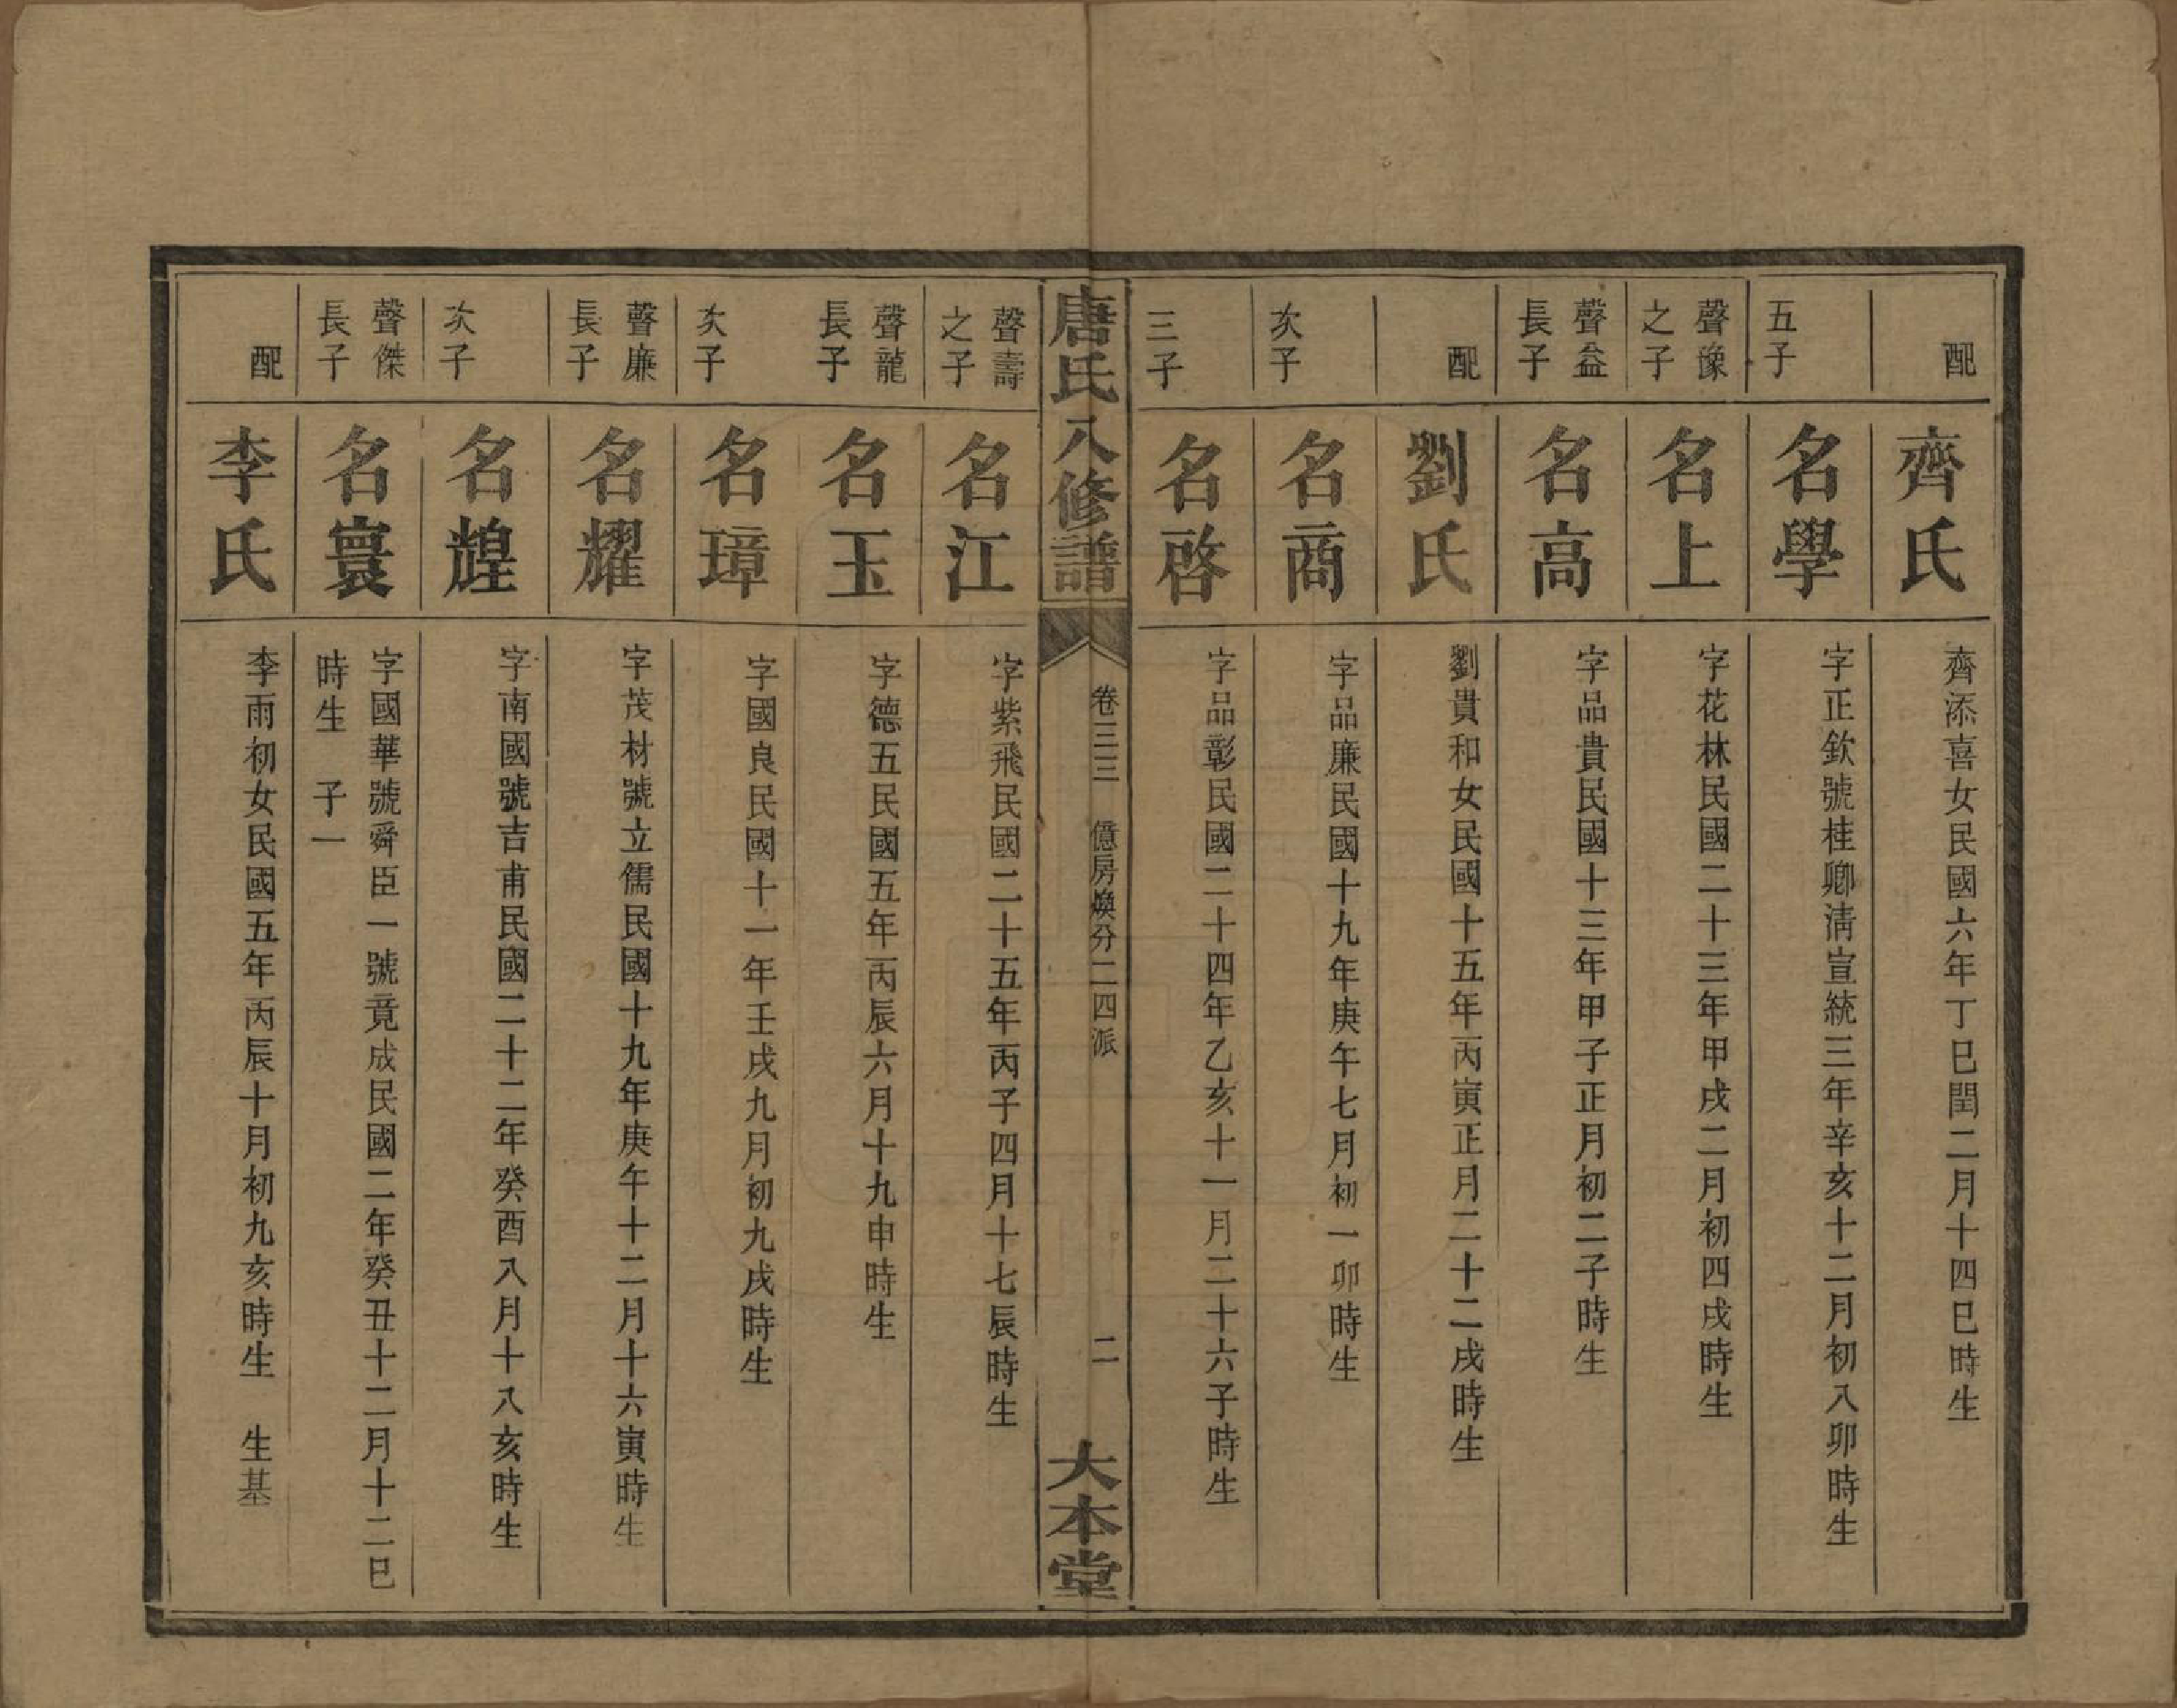 配
齊氏
齊添喜女民國六年丁巳閏二月十四巳時生
五子
名學
字正欽號桂卿淸宣統三年辛亥十二月初八卯時生
聲豫
之子
名上
字花林民國二十三年甲戌二月初四戌時生
聲益
長子
名高
字品貴民國十三年甲子正月初二子時生
配
劉氏
劉貴和女民國十五年丙寅正月二十二戌時生
次子
名商
字品廉民國十九年庚午七月初一卯時生
三子
名啓
字品彰民國二十四年乙亥十一月二十六子時生
唐氏八修譜
卷三三 億房煥分二四派
二
大本堂
聲壽
之子
名江
字紫飛民國二十五年丙子四月十七辰時生
聲龍
長子
名玉
字德五民國五年丙辰六月十九申時生
次子
名璋
字國良民國十一年壬戌九月初九戌時生
聲廉
長子
名耀
字茂材號立儒民國十九年庚午十二月十六寅時生
次子
名煌
字南國號吉甫民國二十二年癸酉八月十八亥時生
聲傑
長子
名寰
字國華號舜臣一號竟成民國二年癸丑十二月十二巳
時生 子一
配
李氏
李雨初女民國五年丙辰十月初九亥時生 生基